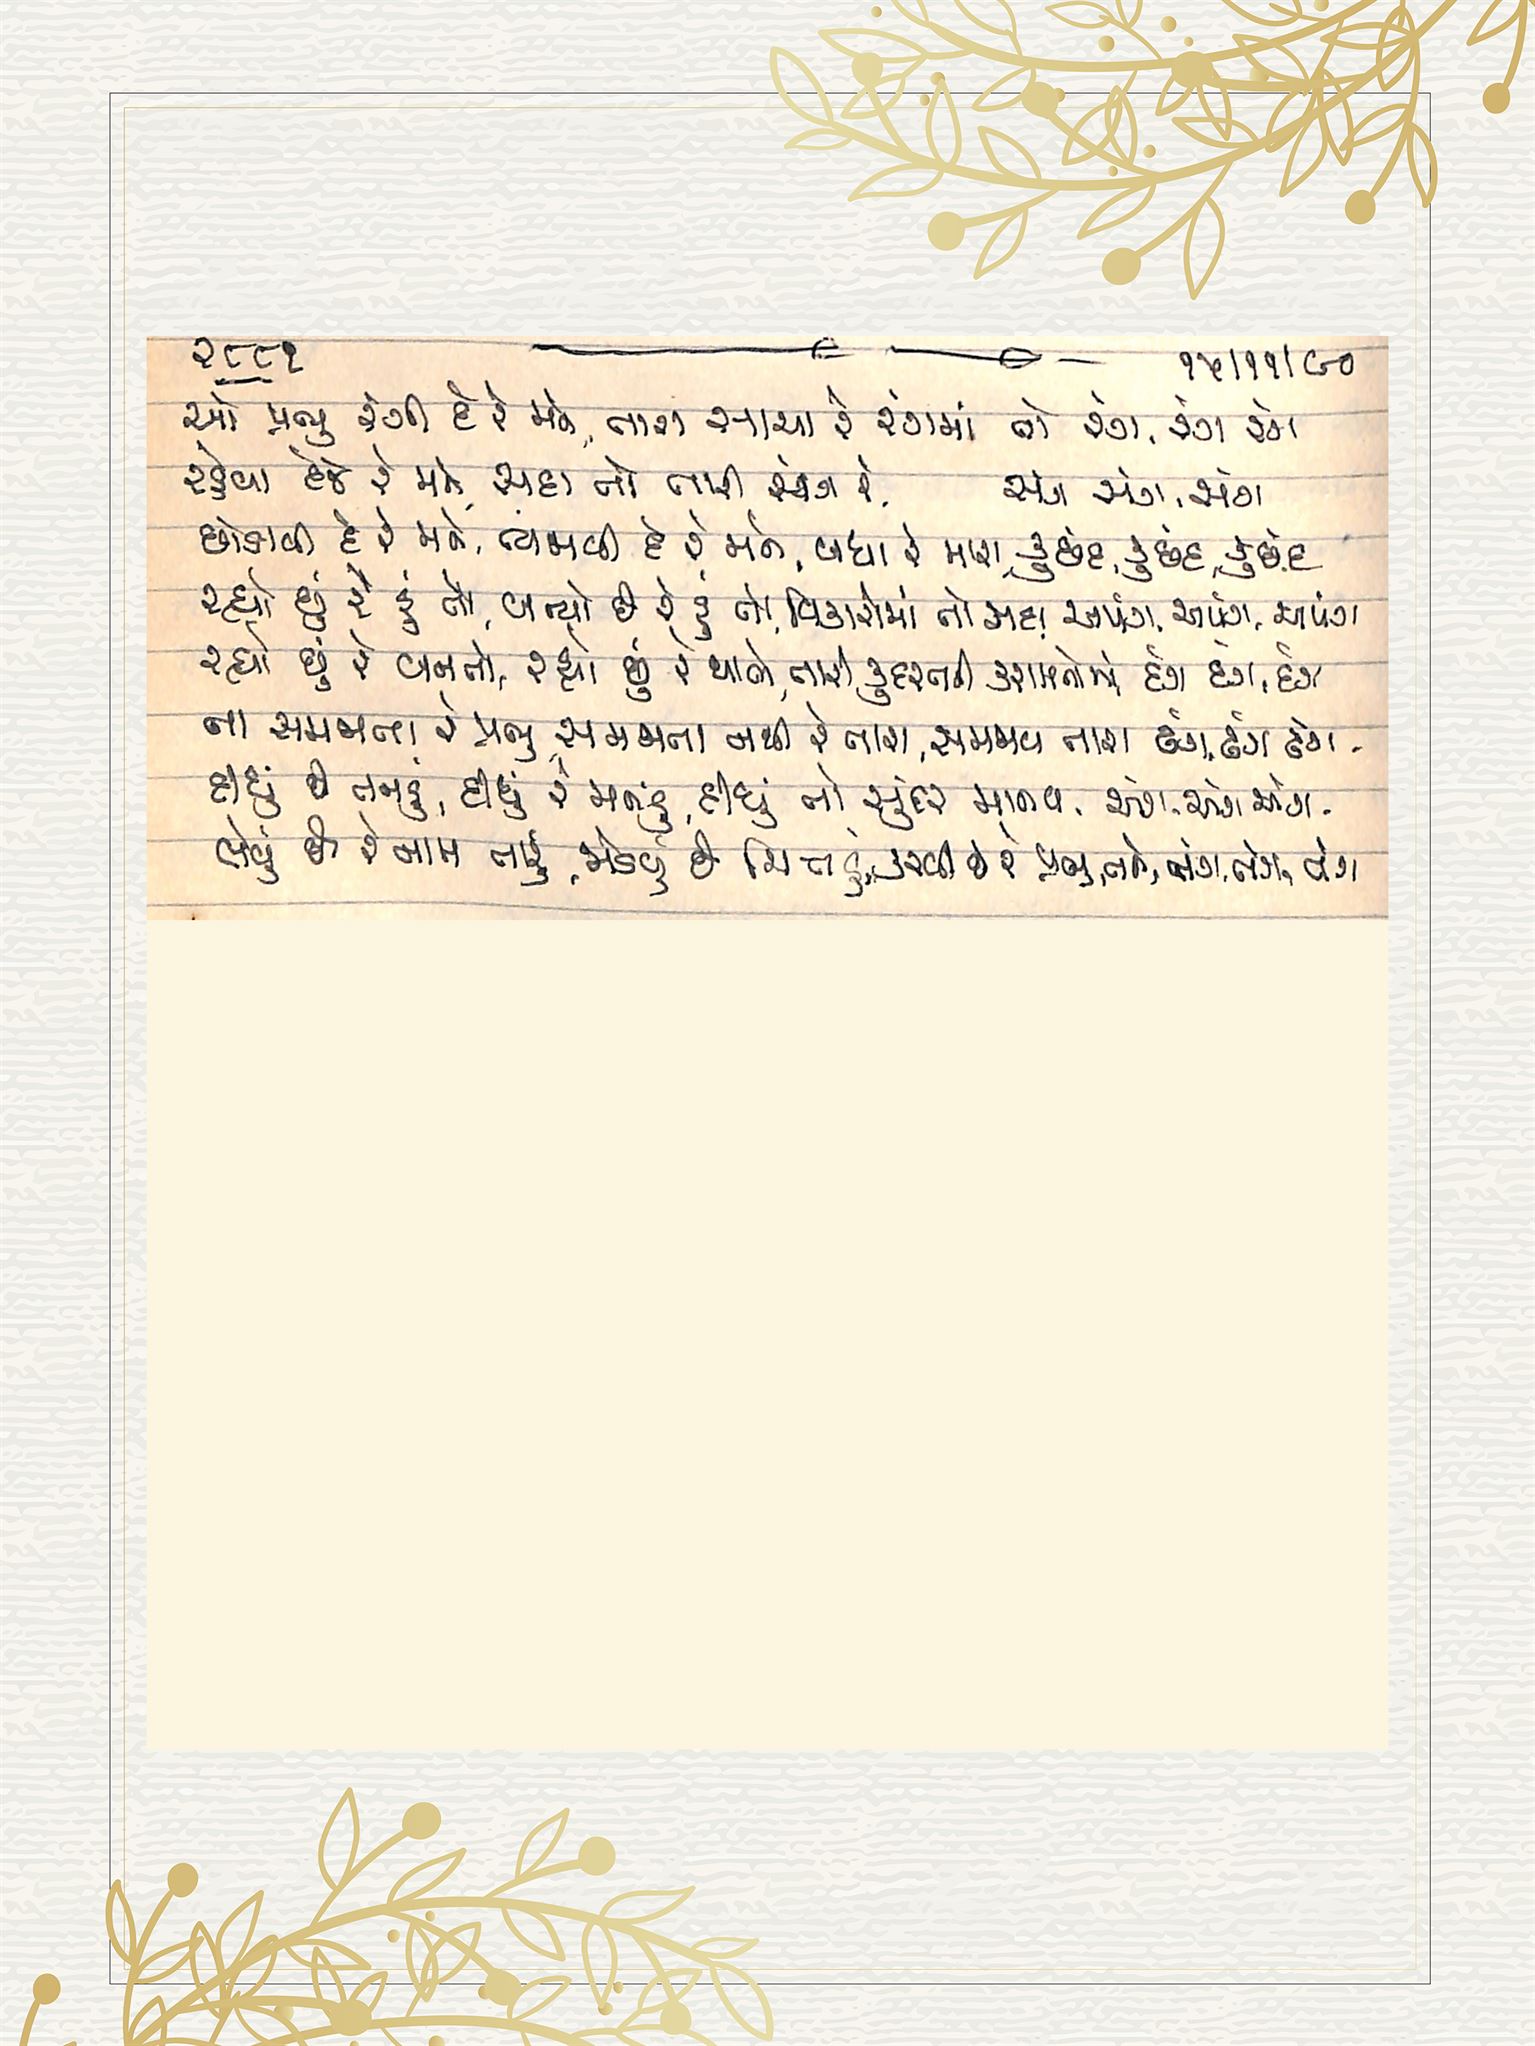 ૨૮૮૧ ૧૫/૧૧/૯૦
ઓ પ્રભુ રંગી દે રે મને, તારા સાચા રે રંગમાં તો રંગ, રંગ રંગ
રહેવા દેજે રે મને, સદા તો તારી સંગ રે. સંગ સંગ, સંગ
છોડાવી દે રે મને, ત્યજાવી દે રે મને, બધા રે મારા, કુછંદ, કુછંદ, કુછંદ
રહ્યો છું રે હું તો, બન્યો છું રે હું તો, વિકારોમાં તો સદા અપંગ, અપંગ, અપંગ
રહ્યો છું રે બનતો, રહ્યો છું રે થાતો, તારી કુદરતની કરામતોમાં દંગ દંગ, દંગ
ના સમજાતા રે પ્રભુ, સમજાતા નથી રે તારા, સમજાવ તારા ઢંગ, ઢંગ ઢંગ.
દીધું છે તનડું, દીધું રે મનડું, દીધું તો સુંદર માનવ. અંગ. અંગ અંગ.
લેવું છે રે નામ તારું, જોડવું છે ચિત્તડું, કરવી છે રે પ્રભુ, તને, તંગ, તંગ, તંગ